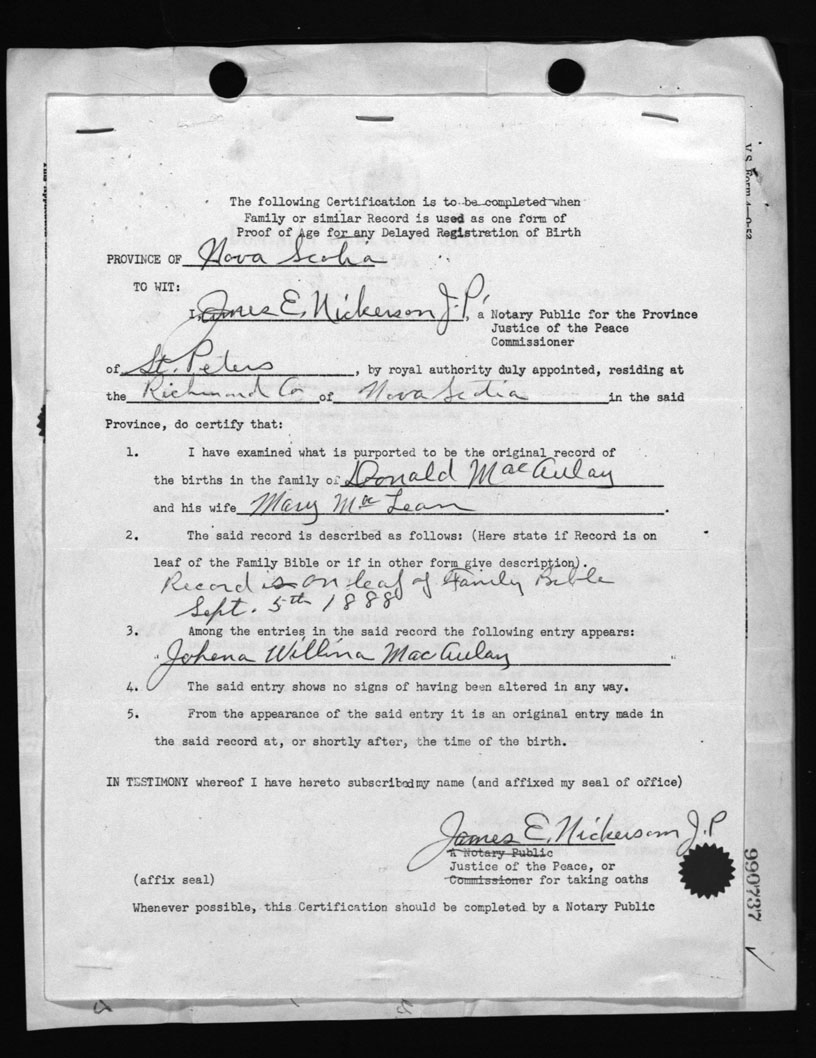 The following Certification is to be completed when
Family or similar Record is used as one form of
Proof of Age for any Delayed Registration of Birth
PROVINCE OF Nova Scotia
TO WIT:
I, James E. Nickerson J.P., a Notary Public for the Province
Justice of the Peace
Commissioner
of St. Peters, by royal authority duly appointed, residing at
the Richmond Co of Nova Scotia in the said
Province, do certify that:
1. I have examined what is purported to be the original record of
the births in the family of Donald MacAulay
and his wife Mary MacLean.
2. The said record is described as follows: (Here state if Record is on
leaf of the Family Bible or if in other form give description).
Record is on leaf of Family Bible
Sept. 5th 1888
3. Among the entries in the said record the following entry appears:
"Johena Willina MacAulay"
4. The said entry shows no signs of having been altered in any way.
5. From the appearance of the said entry it is an original entry made in
the said record at, or shortly after, the time of the birth.
IN TESTIMONY whereof I have hereto subscribed my name (and affixed my seal of office)
James E. Nickerson J.P
A Notary Public
Justice of the Peace, or
(affix seal) Commissioner for taking oaths
Whenever possible, this Certification should be completed by a Notary Public
V.S. Form
990737